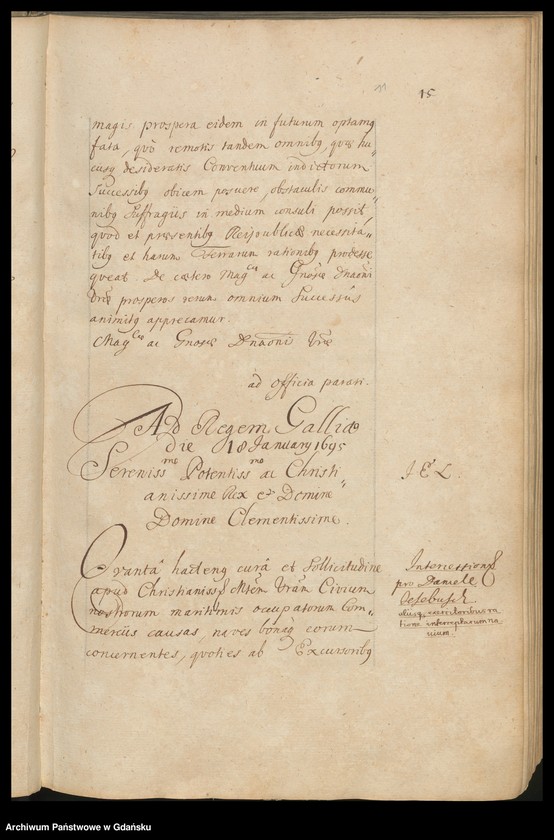 15
magis prospera eidem in futurum optamq
fata, quò remotis tandem omnibq, quæ hu„
cusq desideratis Conventuum indictorum
Successibq obicem posuere, obstaculis commu„
nibq Suffragiis in medium consuli possit,
quod et præsentibq Reipublicæ necessitá„
tibq et harum Terrarum rationibq prodesse
queat. De cætero Magcæ ac Gnosæ Dnaoni
Vræ prosperos rerum omnium Successus
animitq apprecamur.
Magcæ ac Gnosæ Dnaonis Vræ
ad Officia parati.
AD Regem Galliæ
die 18 January 1695
Serenissme Potentissme ac Christi„
anissime Rex et Domine
Domine Clementissime.
I E L.
Qvantâ hacteng curâ et Sollicitudine
apud Christianissę Mtem Vram Civium
nostrorum maritimis occupatorum Com„
merciis causas, naves bonaq eorum
concernentes, quoties ab Excursoribq
Intercession
pro Daniele
eiusq consortibus ra
tione interceptarum na
vium.
Archiwum Państwowe w Gdańsku